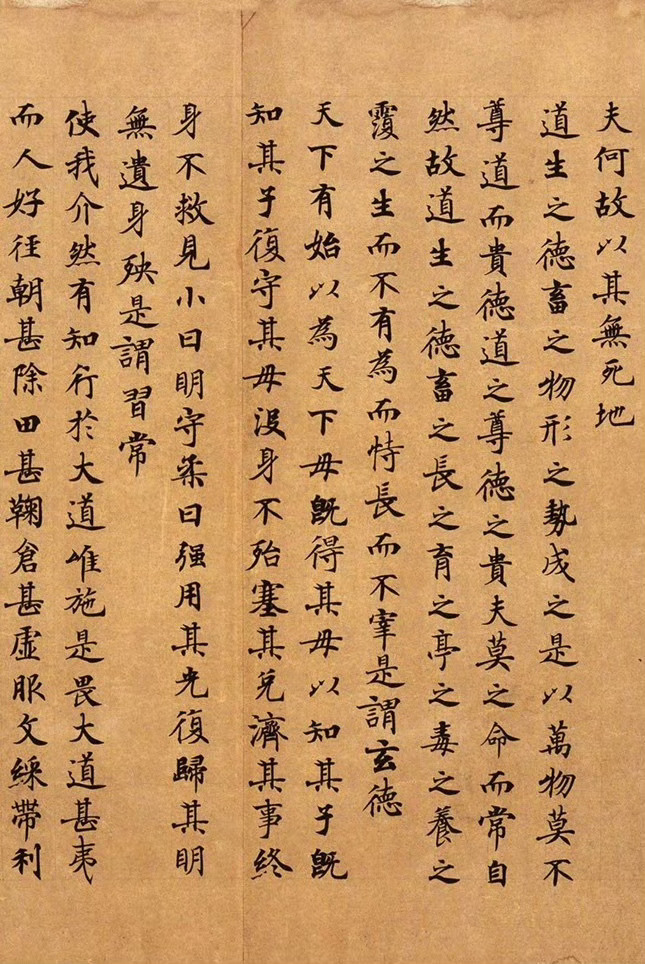 夫何故以其無死地
道生之德畜之物形之勢成之是以萬物莫不
尊道而貴德道之尊德之貴夫莫之命而常自
然故道生之德畜之長之育之亭之毒之養之
覆之生而不有為而恃長而不宰是謂玄德
天下有始以為天下母既得其母以知其子既
知其子復守其母沒身不殆塞其兌濟其事終
身不救見小曰明守柔曰强用其光復歸其明
無遺身殃是謂習常
使我介然有知行於大道唯施是畏大道甚夷
而人好徑朝甚除田甚鞠倉甚虛服文綵帶利